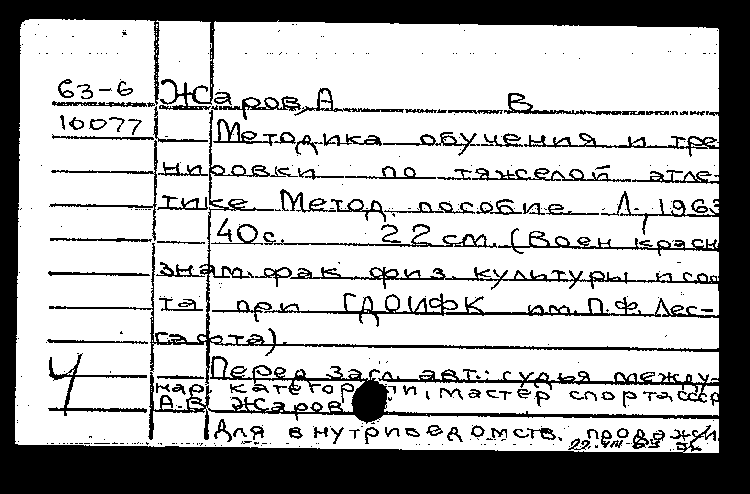 63-6 Жаров, А В
10077 Методика обучения и тре-
нировки по тяжелой атле-
тике. Метод. пособие. Л., 1963
40с. 22 см. (Воен. красн
знам. фак физ. культуры и спо
та при ГДОИФК им. П.Ф. Лес-
гафта).
Перед загл. авт.: судья между-
нар. категории, мастер спорта СССР
А.В. Жаров
Ч
Для внутриведомств. продажи.